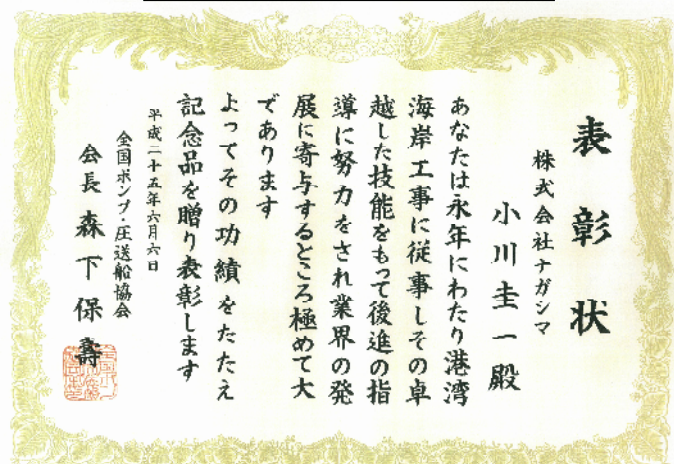 表彰状
株式会社ナガシマ
小川圭一殿
あなたは永年にわたり港湾
海岸工事に従事しその卓
越した技能をもって後進の指
導に努力をされ業界の発
展に寄与するところ極めて大
であります
よってその功績をたたえ
記念品を贈り表彰します
平成二十五年六月六日
全国ポンプ・圧送船協会
会長 森下保壽